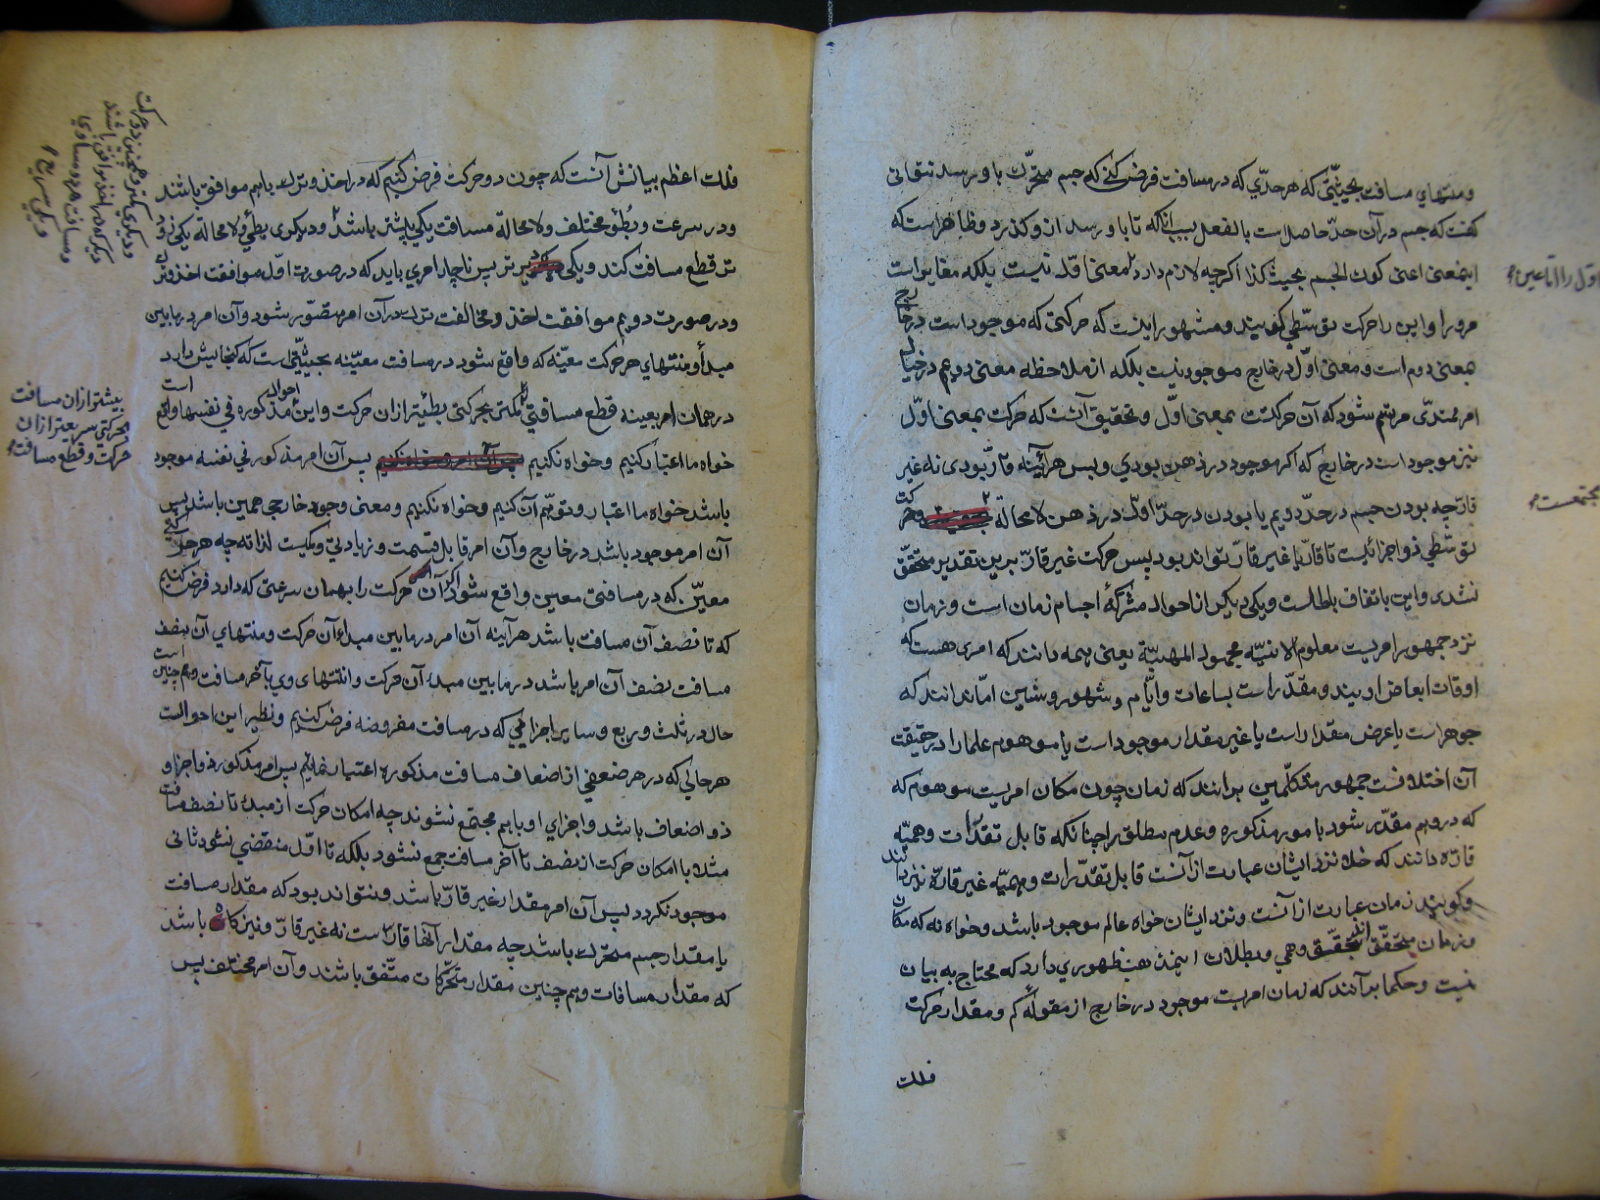 ومنتهاي مسافت بحيثيّتى كه هر حدّي كه در مسافت فرض كنى كه جسم متحرّك باو رسد نتوانى
گفت كه جسم در آن حدّ حاصلست بالفعل بسبب آنكه تا باو رسد ازو گذرد وظاهر است كه
اينمعنى اعنى كون الجسم بحيث كذا اگرچه لازم دارد معنى اوّل نيست بلكه مغاير است
مرورا واين را حركت توسّطي گويند ومشهور اينست كه حركتى كه موجود است در خارج
بمعنى دوم است ومعنى اوّل در خارج موجود نيست بلكه از ملاحظه معنى دويم در خيال
امر ممتدّى مرتسم شود كه آن حركتست بمعنى اوّل وتحقيق آنست كه حركت بمعنى اوّل
نيز موجود است در خارج كه اگر موجود در ذهن بودي وبس هرآينه قارّ بودى نه غير
قارّ چه بودن جسم در حدّ دويم با بودن در حدّ اوّل در ذهن لا محالة وحركت
توسّطي ذو اجزا نيست تا قارّ يا غير قارّ تواند بود پس حركت غير قارّ برين تقدير متحقّق
نشدى واين باتفاق باطلست ويكى ديگر از احوال مشتركهٔ اجسام زمان است وزمان
نزد جمهور امريست معلوم الانيّه مجهول المهيّة يعنى همه دانند كه امرى هست كه
اوقات ابعاض اويند ومقدّر است بساعات وايّام وشهور وسنين امّا ندانند كه
جوهر است يا عرض مقدار است يا غير مقدار موجود است يا موهوم علما را در حقيقت
آن اختلافست جمهور متكلّمين برانند كه زمان چون مكان امريست موهوم كه
كه در وهم مقدّر شود بامور مذكوره وعدم مطلق را چنانكه قابل تقدّرات وهميّه
قارّه دانند كه خلا نزد ايشان عبارت از آنست قابل تقدّرات وهميّه غير قارّة نيز دانند
وگويند زمان عبارت از آنست ونزد ايشان خواه عالم موجود باشد وخواه نه كه مكان
وزمان متحقّق اند بتحقّق وهمي وبطلان اين مذهب ظهوري دارد كه محتاج به بيان
نيست وحكما برآنند كه زمان امريست موجود در خارج از مقولهٔ كم ومقدار حركت
فلك
اوّل را امّا عين
مجتمعست
فلك اعظم بيانش آنست كه چون دو حركت فرض كنيم كه در اخذ وترك باهم موافق باشند
ودر سرعت وبُطؤ مختلف ولا محالة مسافت يكى بيشتر باشد وديگرى بطي ولا محالة يكى زود
تر قطع مسافت كند ويكى ديرتر پس ناچار امري بايد كه در صورت اوّل موافقت اخذ وترك
ودر صورت دويم موافقت اخذ ومخالفت ترك در آن امر متصوّر شود وآن امر در مابين
مبدأ ومنتهاي هر حركت معيّنه كه واقع شود در مسافت معيّنه بحيثيّتى است كه گنجايش دارد
در همان امر بعينه قطع مسافتي كمتر بحركتى بطيتر ازان حركت واين احوال مذكوره في نفسها واقع است
خواه ما اعتبار كنيم وخواه نكنيم پس آن امر مذكور في نفسه موجود
باشد خواه ما اعتبار وتوهّم آن كنيم وخواه نكنيم ومعنى وجود خارجي همين باشد پس
آن امر موجود باشد در خارج وآن امر قابل قسمت وزيادتي وكميست لذاته چه هر حركتى
معيّن كه در مسافتى معين واقع شود اگر آن حركت را بهمان سرعتى كه دارد فرض كنيم
كه تا نصف آن مسافت باشد هرآينه آن امر در مابين مبداء آن حركت ومنتهاي آن بنصف
مسافت نصف آن امر باشد در مابين مبدء آن حركت وانتهاى وي بآخر مسافت وهمچنين است
حال در ثلث وربع وساير اجزائى كه در مسافت مفروضه فرض كنيم ونظير اين احوالست
هر حالي كه در هر ضعفي از اضعاف مسافت مذكوره اعتبار نمايم پس امر مذكور ذو اجزا و
ذو اضعاف باشد واجزاي او باهم مجتمع نشوند چه امكان حركت از مبدء تا نصف مسافت
مثلا با امكان حركت از نصف تا آخر مسافت جمع نشود بلكه تا اوّل منقضي نشود ثانى
موجود نگردد پس آن امر مقدار غير قارّ باشد ونتواند بود كه مقدار مسافت
يا مقدار جسم متحرّك باشد چه مقدار آنها قارّست نه غير قارّ ونيز گاه باشد
كه مقدار مسافات وهم چنين مقدار متحرّكات متّفق باشند وآن امر مختلف پس
وديگرى كمتر وهمچنين دو حركت
ديگر كه در اخذ موافق باشند
ومسافت هر دو مساوي
ويكى سريع
بيشتر ازان مسافت
بحركتي سريعتر ازان
حركت وقطع مسافت